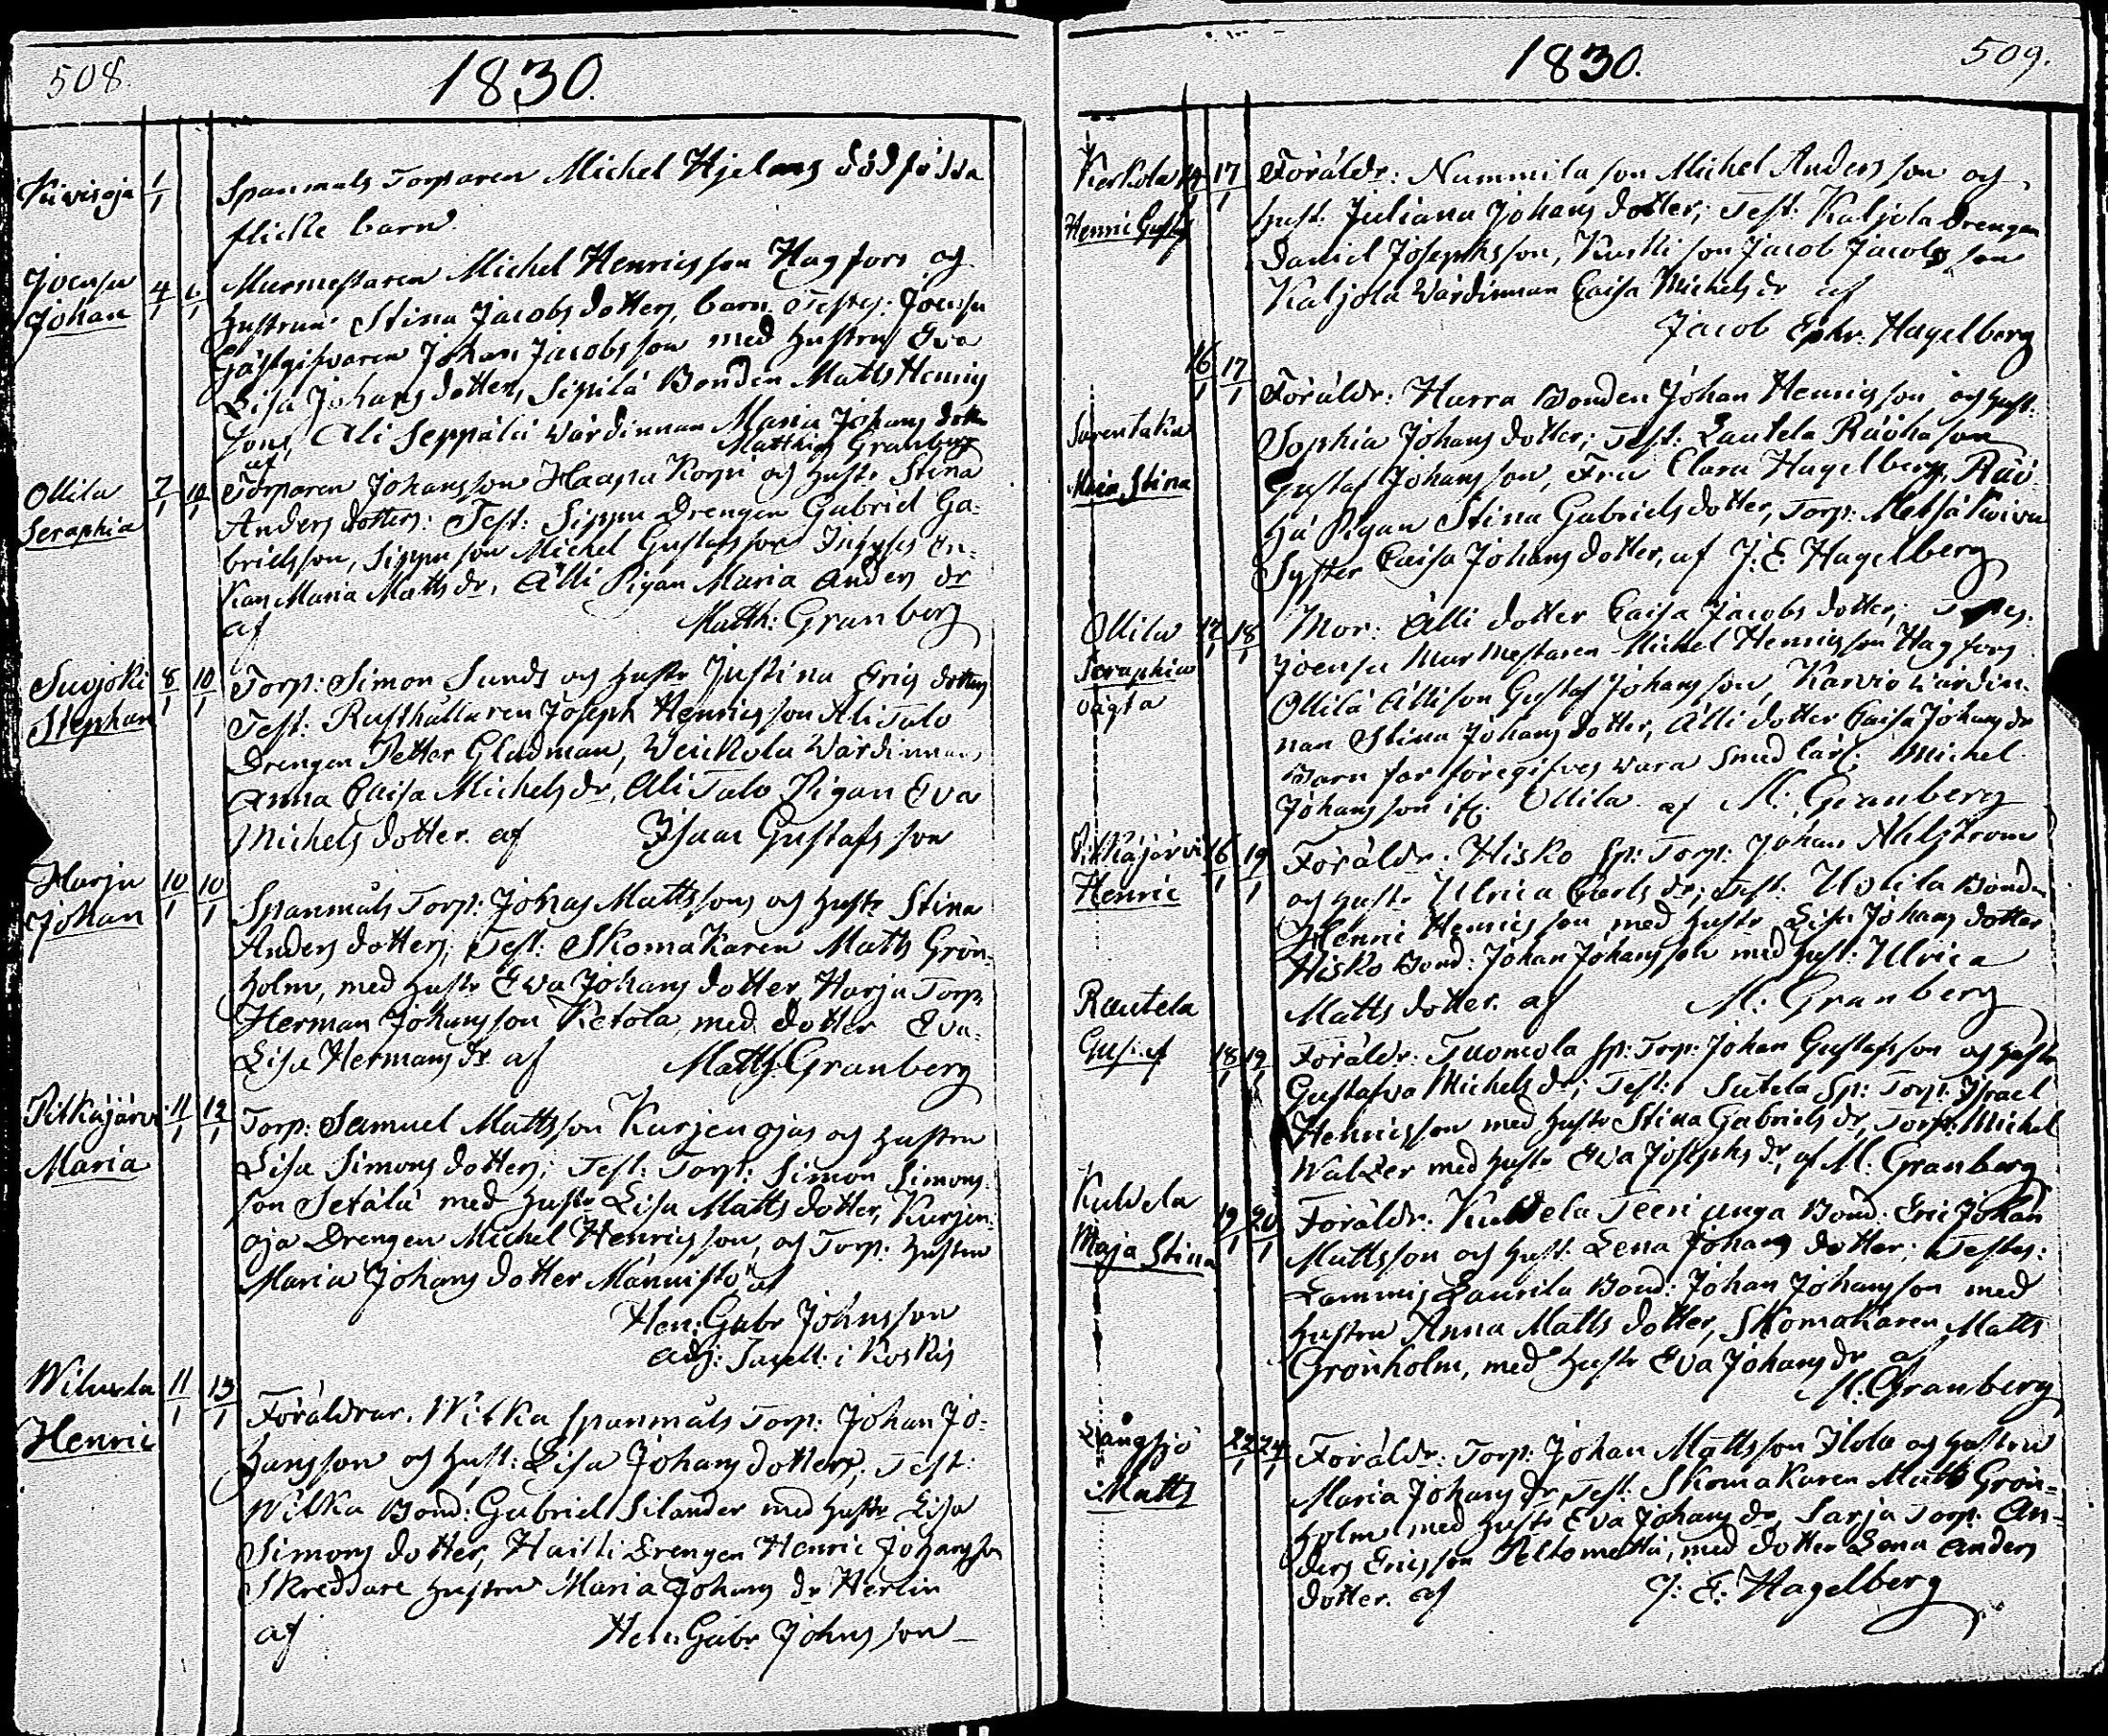 508.
1830.
Kiwisoja 1/1 Spanmåls Torparen Michel Hjelms dödfödda
flicke barn.
Joensu 4/1 6/1 Murmestaren Michel Henricsson Hagfors og
Johan Hustrun Stina Jacobsdotters barn. Testes: Joensu
Gästgifvaren Johan Jacobsson med hustru Eva
Lisa Johansdotter, Sipilä Bonden Matts Henrics
son, Ali Seppälä Värdinnan Maria Johans dotter
af Matthias Granberg
Ollila 7/1 10/1 Torparen Johansson Haapa Korpi og hustr Stina
Seraphia Anders dotters: Test: Sippu Drengen Gabriel Ga-
brielsson, Sippu son Michel Gustafsson Inhyses En-
kan Maria Matts dr, Älli Pigan Maria Anders dr
af Matth: Granberg
Suojoki 8/1 10/1 Torp: Simon Sunds og hustr Justina Erics dotters
Stephan Test: Rusthållaren Joseph Henricsson Ali Talo
Drengen Petter Gladman, Weickola Värdinnan
Anna Caisa Michels dr, Ali Talo Pigan Eva
Michels dotter. af Isaac Gustafsson
Harju 10/1 10/1 Spanmåls Torp: Johan Mattssons og hustr Stina
Johan Anders dotters; Test: Skomakaren Matts Grön-
holm, med hustr Eva Johans dotter, Harju Torp
Herman Johansson Ketola, med dotter Eva
Lisa Hermans dr af Matth: Granberg
Pitkäjärvi 11/1 12/1 Torp: Samuel Mattsson Kurjenojas og hustru
Maria Lisa Simons dotters; Test: Torp: Simon Simons-
son Setälä med hustr Lisa Matts dotter, Kurjen-
oja Drengen Michel Henricsson, og Torp: hustru
Maria Johans dotter Männistö af
Hen: Gabr Johnsson
adj: Sacell: i Koskis
Wiluxela 11/1 13/1 Föräldrar. Witka Spanmåls Torp: Johan Jo-
Henric hansson og hust: Lisa Johans dotter; Test:
Witka Bond: Gabriel Silander med hustr Lisa
Simons dotter, Haitti Drengen Henric Johansson
Skreddare hustru Maria Johans dr Herlin
af Hen: Gabr Johnsson
1830.
509.
Kerkola 14/1 17/1 Föräldr: Nummila son Michel Andersson og
Henric Gustaf hust: Juliana Johans dotter; Test: Kaljola Drengen
Daniel Josephsson, Kurki son Jacob Jacobsson
Kaljola Värdinnan Caisa Michels dr af
Jacob Ephr: Hagelberg
16/1 17/1 Föräldr: Harra Bonden Johan Henricsson og hust:
Surentaka Sophia Johans dotter; Test: Lautela Räöhä son
Maia Stina Gustaf Johansson, Fru Clara Hagelberg, Räö-
hä Pigan Stina Gabriels dotter, Torp: Metsä Kivin
Syster Caisa Johans dotter, af J: E: Hagelberg
Ollila 17/1 18/1 Mor: Älli dotter Caisa Jacobs dotter; Testes:
Seraphia Joensu Murmestaren Michel Henricsson Hagfors
oägta Ollila Älli son Gustaf Johansson, Karvio Värdin-
nan Stina Johans dotter, Älli dotter Caisa Johans dr
Barn far föregifves vara Smed Carl: Michel
Johansson ifr: Ollila. af M: Granberg
Pitkäjärvi 16/1 19/1 Föräldr: Hisko Sp: Torp: Johan Ahlström
Henric og hustr Ulrica Carls dr; Test: Uotila Bonden
Henric Henricsson med hustr Lisa Johans dotter
Hisko Bond: Johan Johansson med hust: Ulrica
Matts dotter. af M: Granberg
Rautela
Gustaf 18/1 19/1 Föräldr: Tuomola Sp: Torp: Johan Gustafsson og hustr
Gustafva Michels dr; Test: Sutela Sp: Torp: Israel
Henricsson med hustr Stina Gabriels dr, Torp: Michel
Walder med hustr Eva Josephs dr, af M: Granberg
Kulvela 19/1 20/1 Föräldr: Kulvela Teeri unga Bond: Eric Johan
Maja Stina Mattsson og hust: Lena Johans dotter: Testes:
Lammis Laurila Bond: Johan Johansson med
hustru Anna Matts dotter, Skomakaren Matts
Grönholm, med hustr Eva Johans dr af
M: Granberg
Långsjö 22/1 24/1 Föräldr: Torp: Johan Mattsson Ilola og hustru
Matts Maria Johans dr, Test: Skomakaren Matts Grön-
holm med hustr Eva Johans dr, Sarja Torp: An-
ders Ericsson Peltomettä, med dotter Lena Anders
dotter. af J: E: Hagelberg